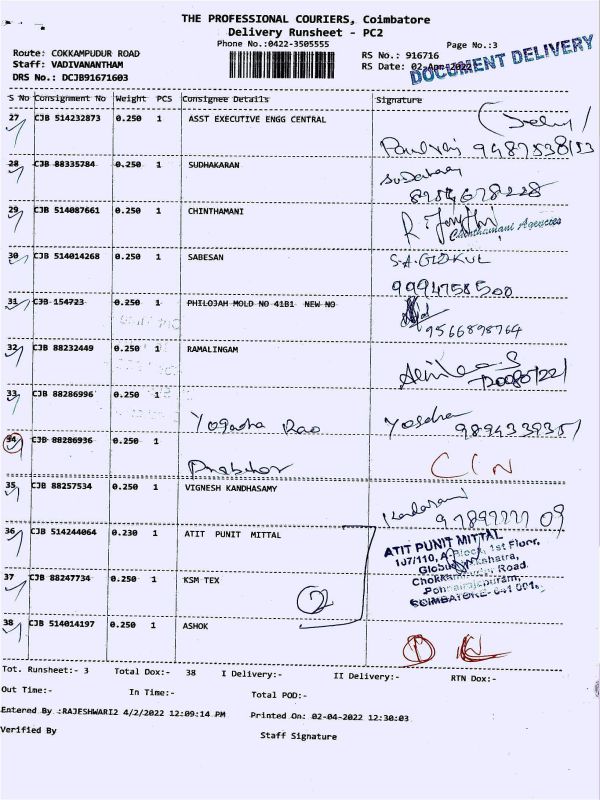 THE PROFESSIONAL COURIERS, Coimbatore
Delivery Runsheet - PC2
Phone No.:0422-3505555
Page No.:3
Route: COKKAMPUDUR ROAD
RS No.: 916716
Staff: VADIVANANTHAM
RS Date: 02-Apr-2022
DOCUMENT DELIVERY
DRS No.: DCJB91671603
S No Consignment No Weight PCS Consignee Details Signature
27 CJB 514232873 0.250 1 ASST EXECUTIVE ENGG CENTRAL
28 CJB 88335784 0.250 1 SUDHAKARAN
29 CJB 514087661 0.250 1 CHINTHAMANI
Chinthamani Agencies
30 CJB 514014268 0.250 1 SABESAN S.A. GOKUL
9994758500
31 CJB 154723 0.250 1 PHILOJAH MOLD NO 41B1 NEW NO
9566898764
32 CJB 88232449 0.250 1 RAMALINGAM
33 CJB 88286996 0.250 1
34 CJB 88286936 0.250 1
35 CJB 88257534 0.250 1 VIGNESH KANDHASAMY
36 CJB 514244064 0.230 1 ATIT PUNIT MITTAL
ATIT PUNIT MITTAL
107/110, 1st Floor,
Road,
COIMBATORE
37 CJB 88247734 0.250 1 KSM TEX
2
38 CJB 514014197 0.250 1 ASHOK
Tot. Runsheet:- 3 Total Dox:- 38 I Delivery:- II Delivery:- RTN Dox:-
Out Time:- In Time:- Total POD:-
Entered By :RAJESHWARI2 4/2/2022 12:09:14 PM Printed On: 02-04-2022 12:30:03
Verified By Staff Signature